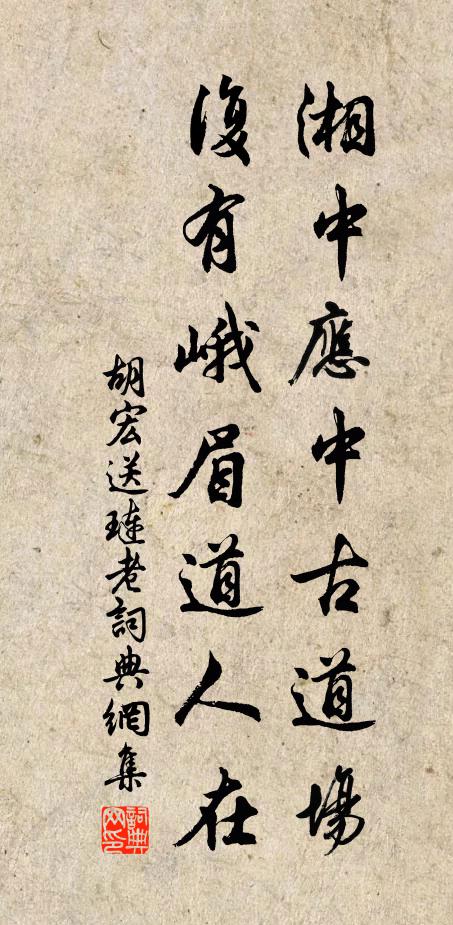 湘中應中古道場
復有峨眉道人在
胡宏送璉老詞典網集
詞典網印